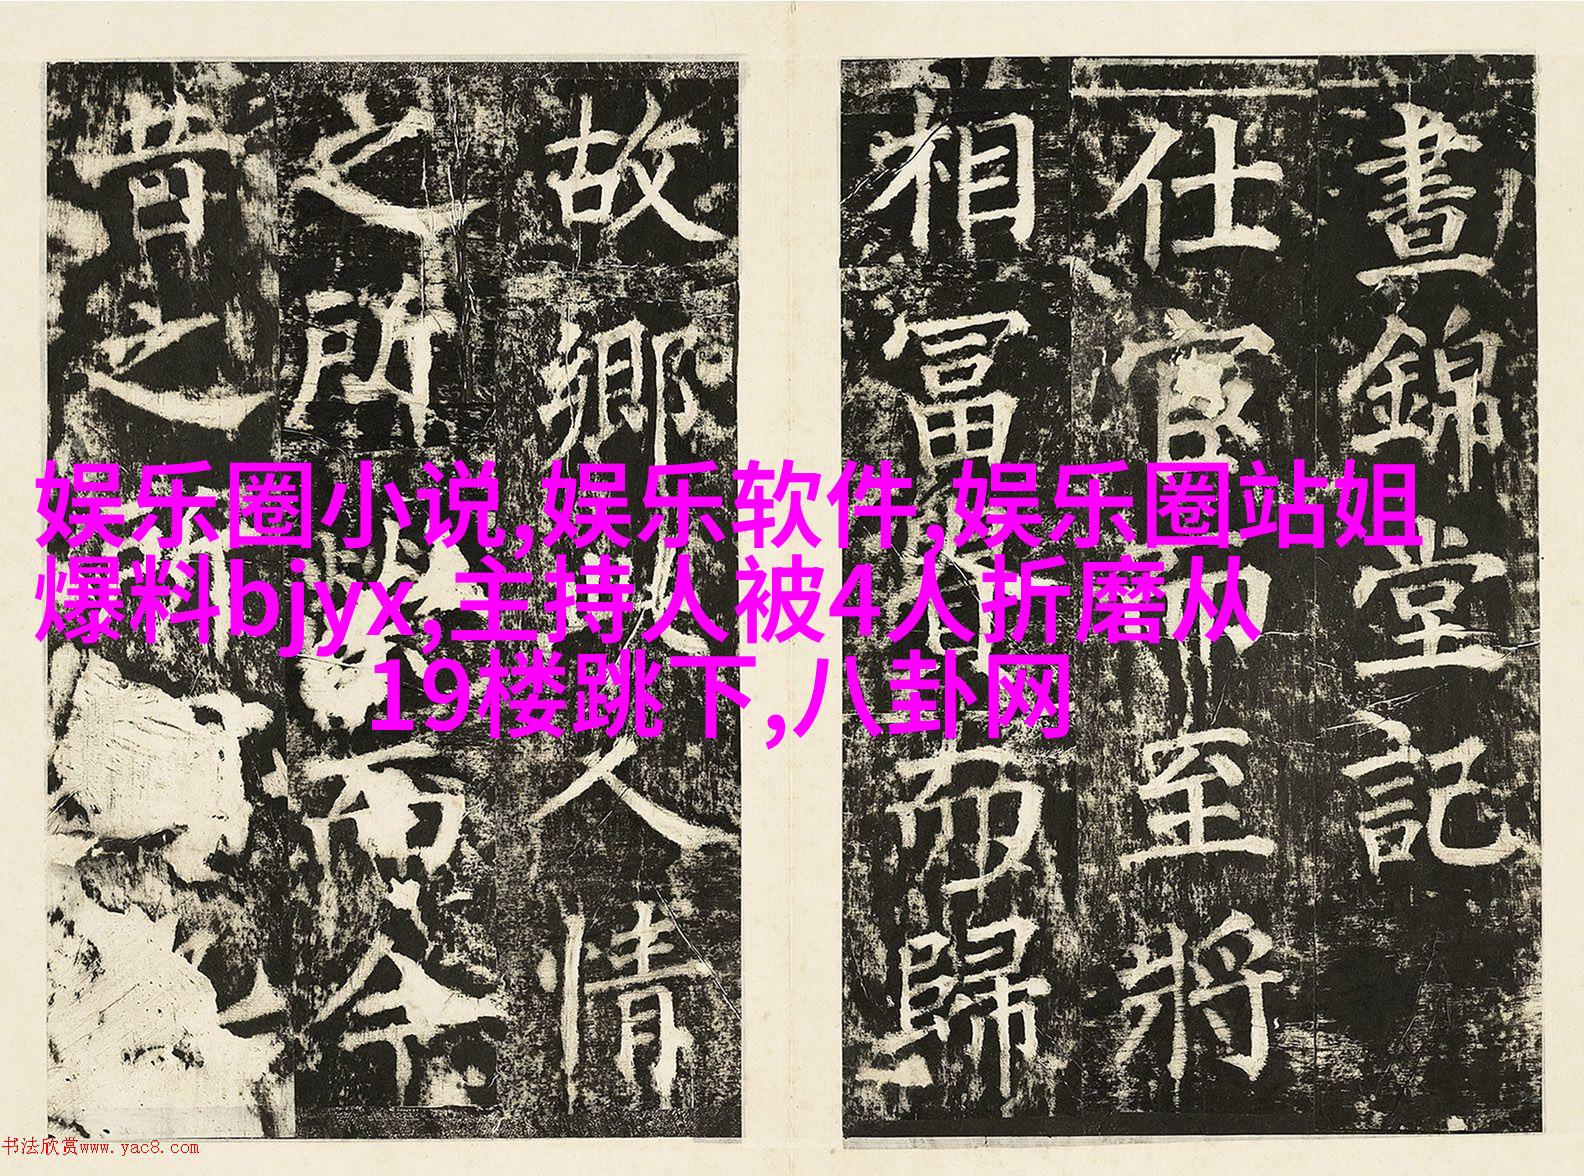 晝錦堂記
仕宦而至將
相富貴而歸
故鄉此人情
之所榮而今
昔之所
娱乐圈小说,娱乐软件,娱乐圈站姐
爆料bjyx,主持人被4人折磨从
19楼跳下,八卦网
书法欣赏www.yac8.com